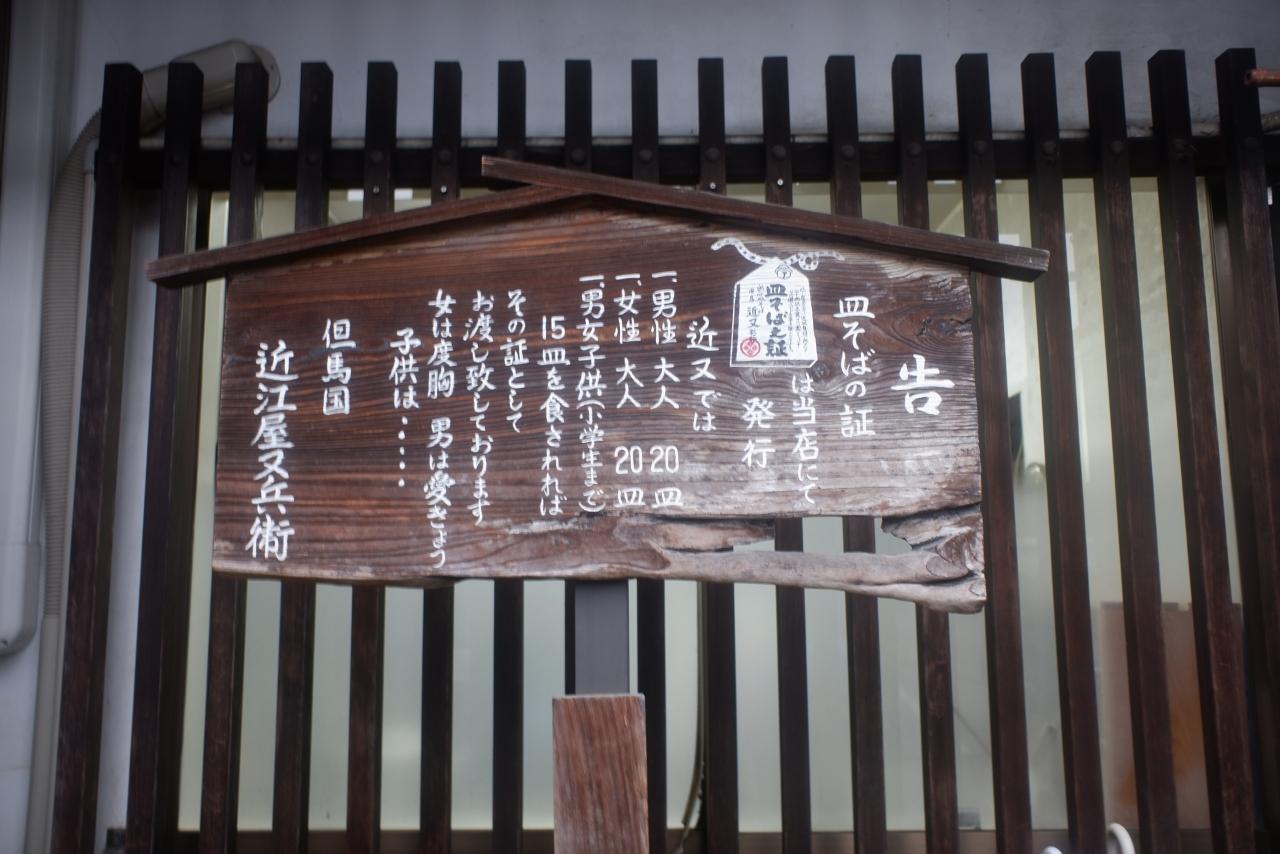 告
皿そばの証
は当店にて
発行
皿そば之証
近又
近又では
一、男性 大人 20皿
一、女性 大人 20皿
一、男女子供(小学生まで)
15皿を食されれば
その証として
お渡し致しております
女は度胸 男は愛きょう
子供は・・・・・
但馬国
近江屋又兵衛